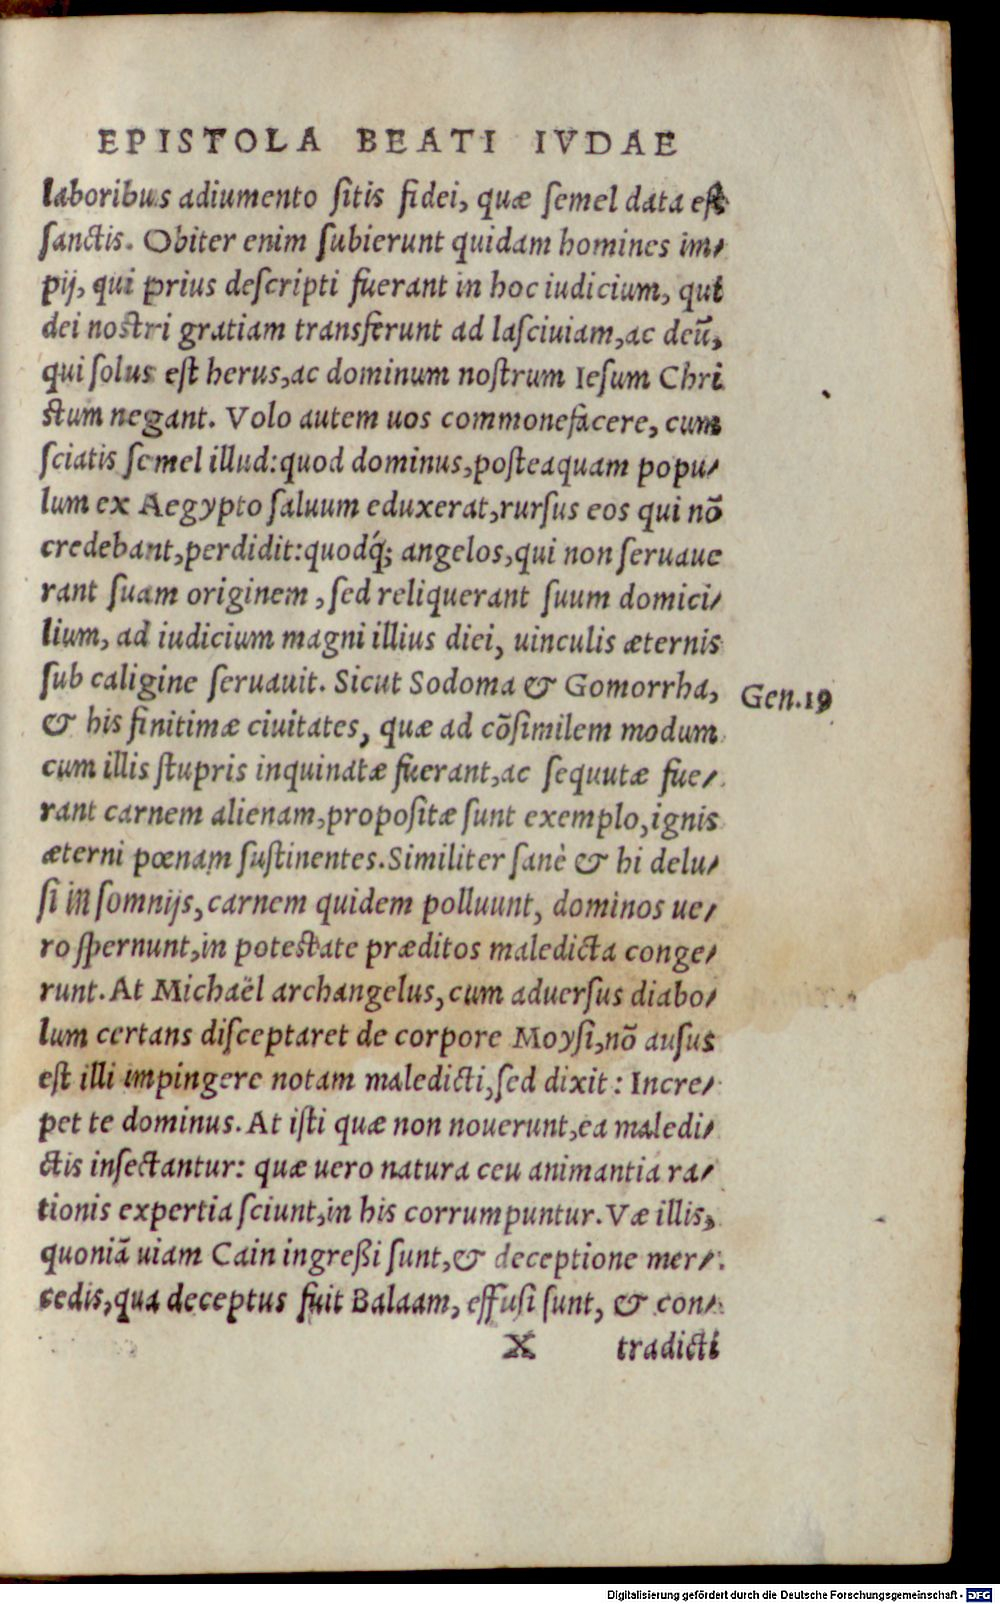 EPISTOLA BEATI IVDAE
laboribus adiumento ſitis fidei, quæ ſemel data eſt
ſanctis. Obiter enim ſubierunt quidam homines im⸗
pij, qui prius deſcripti fuerant in hoc iudicium, qui
dei noſtri gratiam transferunt ad laſciuiam, ac deū,
qui ſolus eſt herus, ac dominum noſtrum Ieſum Chri
ſtum negant. Volo autem uos commonefacere, cum
ſciatis ſemel illud: quod dominus, poſteaquam popu⸗
lum ex Aegypto ſaluum eduxerat, rurſus eos qui nō
credebant, perdidit: quodq́; angelos, qui non ſeruaue
rant ſuam originem, ſed reliquerant ſuum domici⸗
lium, ad iudicium magni illius diei, uinculis æternis
ſub caligine ſeruauit. Sicut Sodoma & Gomorrha,
Gen.19
& his finitimæ ciuitates, quæ ad cōſimilem modum
cum illis ſtupris inquinatæ fuerant, ac ſequutæ fue⸗
rant carnem alienam, propoſitæ ſunt exemplo, ignis
æterni pœnam ſuſtinentes. Similiter ſanè & hi delu⸗
ſi inſomnijs, carnem quidem polluunt, dominos ue⸗
ro ſpernunt, in poteſtate præditos maledicta conge⸗
runt. At Michaël archangelus, cum aduerſus diabo⸗
lum certans diſceptaret de corpore Moyſi, nō auſus
eſt illi impingere notam maledicti, ſed dixit: Incre⸗
pet te dominus. At iſti quæ non nouerunt, ea maledi⸗
ctis inſectantur: quæ uero natura ceu animantia ra⸗
tionis expertia ſciunt, in his corrumpuntur. Væ illis,
quoniā uiam Cain ingreßi ſunt, & deceptione mer⸗
cedis, qua deceptus fuit Balaam, effuſi ſunt, & con⸗
X tradicti
Digitalisierung gefördert durch die Deutsche Forschungsgemeinschaft - DFG